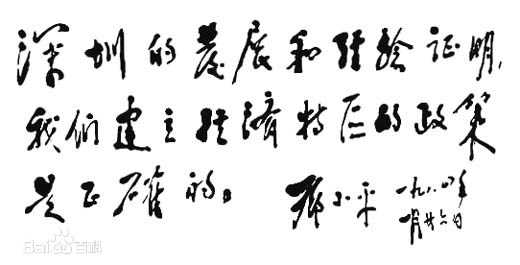 深圳的发展和经验证明,
我们建立经济特区的政策
是正确的。
邓小平
一九八四年
一月廿六日
Baidu百科